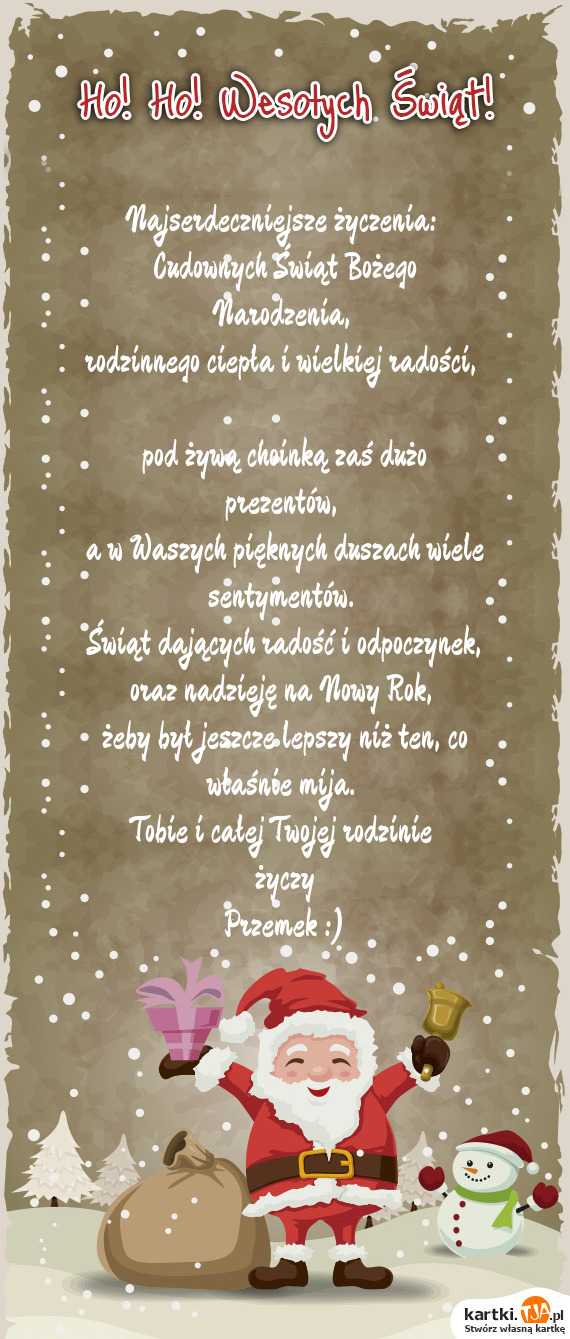 Ho! Ho! Wesołych Świąt!
Najserdeczniejsze życzenia:
Cudownych Świąt Bożego
Narodzenia,
rodzinnego ciepła i wielkiej radości,
pod żywą choinką zaś dużo
prezentów,
a w Waszych pięknych duszach wiele
sentymentów.
Świąt dających radość i odpoczynek,
oraz nadzieję na Nowy Rok,
żeby był jeszcze lepszy niż ten, co
właśnie mija.
Tobie i całej Twojej rodzinie
życzy
Przemek :)
kartki.TJA.pl
Stwórz własną kartkę